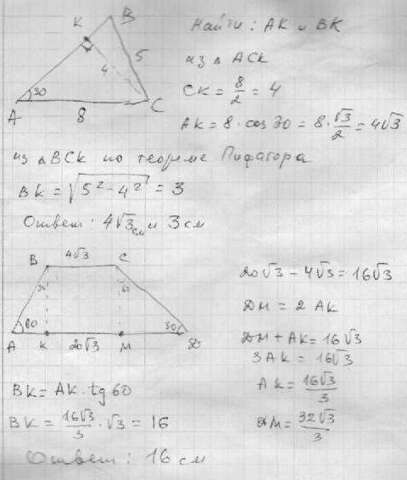 K
B
5
4
30
A
8
C
Найти: AK и BK
из △ ACK
CK = 8/2 = 4
AK = 8 · cos 30 = 8 · √3/2 = 4√3
из △ BCK по теореме Пифагора
BK = √(5² - 4²) = 3
Ответ: 4√3 см и 3 см
B
4√3
C
60
30
A
K
20√3
M
D
20√3 - 4√3 = 16√3
DM = 2 AK
DM + AK = 16√3
3AK = 16√3
AK = 16√3/3
DM = 32√3/3
BK = AK · tg 60
BK = 16√3/3 · √3 = 16
Ответ: 16 см